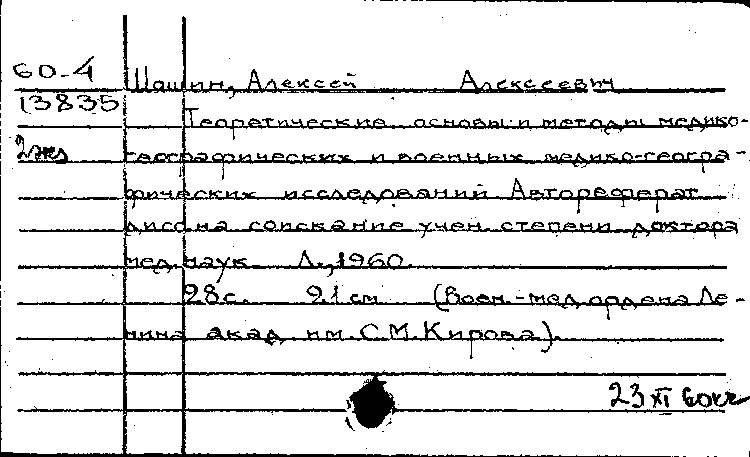 60-4 Шошин, Алексей Алексеевич
13835 Теоретические основы и методы медико-
2 экз географических и военных медико-геогра-
фических исследований Автореферат
дисс на соискание учен. степени доктора
мед. наук Л., 1960.
28 с. 21 см (Воен.-мед. ордена Ле-
нина акад. им. С.М. Кирова).
23 XI 60